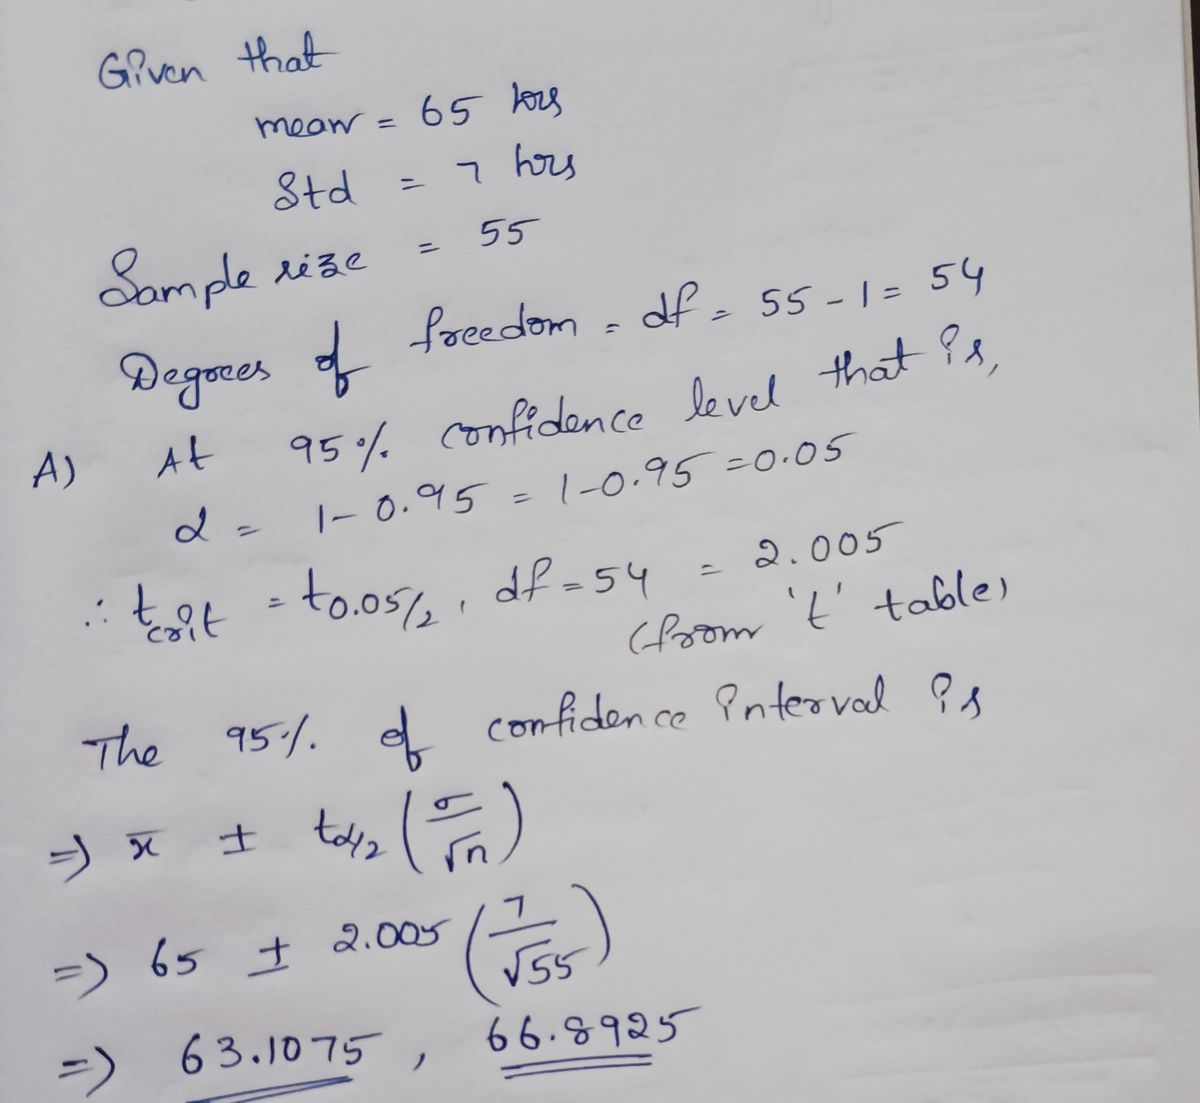 Given that
mean = 65 hrs
Std = 7 hrs
Sample size = 55
Degrees of freedom = df = 55 - 1 = 54
A) At 95% confidence level that is,
α = 1 - 0.95 = 1 - 0.95 = 0.05
∴ t_crit = t_0.05/2, df = 54 = 2.005
(from 't' table)
The 95% of confidence interval is
⇒ x̄ ± t_α/2 (σ/√n)
⇒ 65 ± 2.005 (7/√55)
⇒ 63.1075, 66.8925